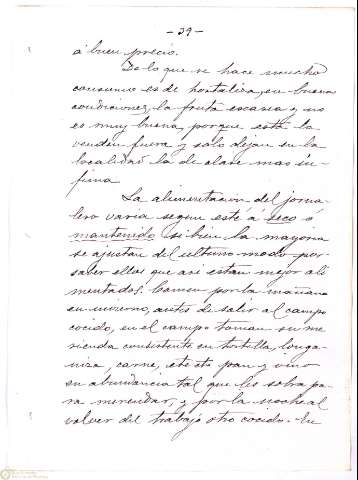 - 39 -
á buen precio.
De lo que se hace mucho
consumo es de hortaliza, en buenas
condiciones, la fruta escasea y no
es muy buena, porque esta la
venden fuera y solo dejan en la
localidad la de clase mas ín-
fima
La alimentacion del jorna-
lero varia segun esté á seco ó
mantenido si bien la mayoria
se ajustan del ultimo modo por
saber ellos que asi estan mejor ali
mentados. Comen por la mañana
en invierno, antes de salir al campo
cocido, en el campo toman su me
rienda consistente en tortilla, longa-
niza, carne, etc etc pan y vino
en abundancia tal que les sobra pa
ra merendar, y por la noche al
volver del trabajo otro cocido. En